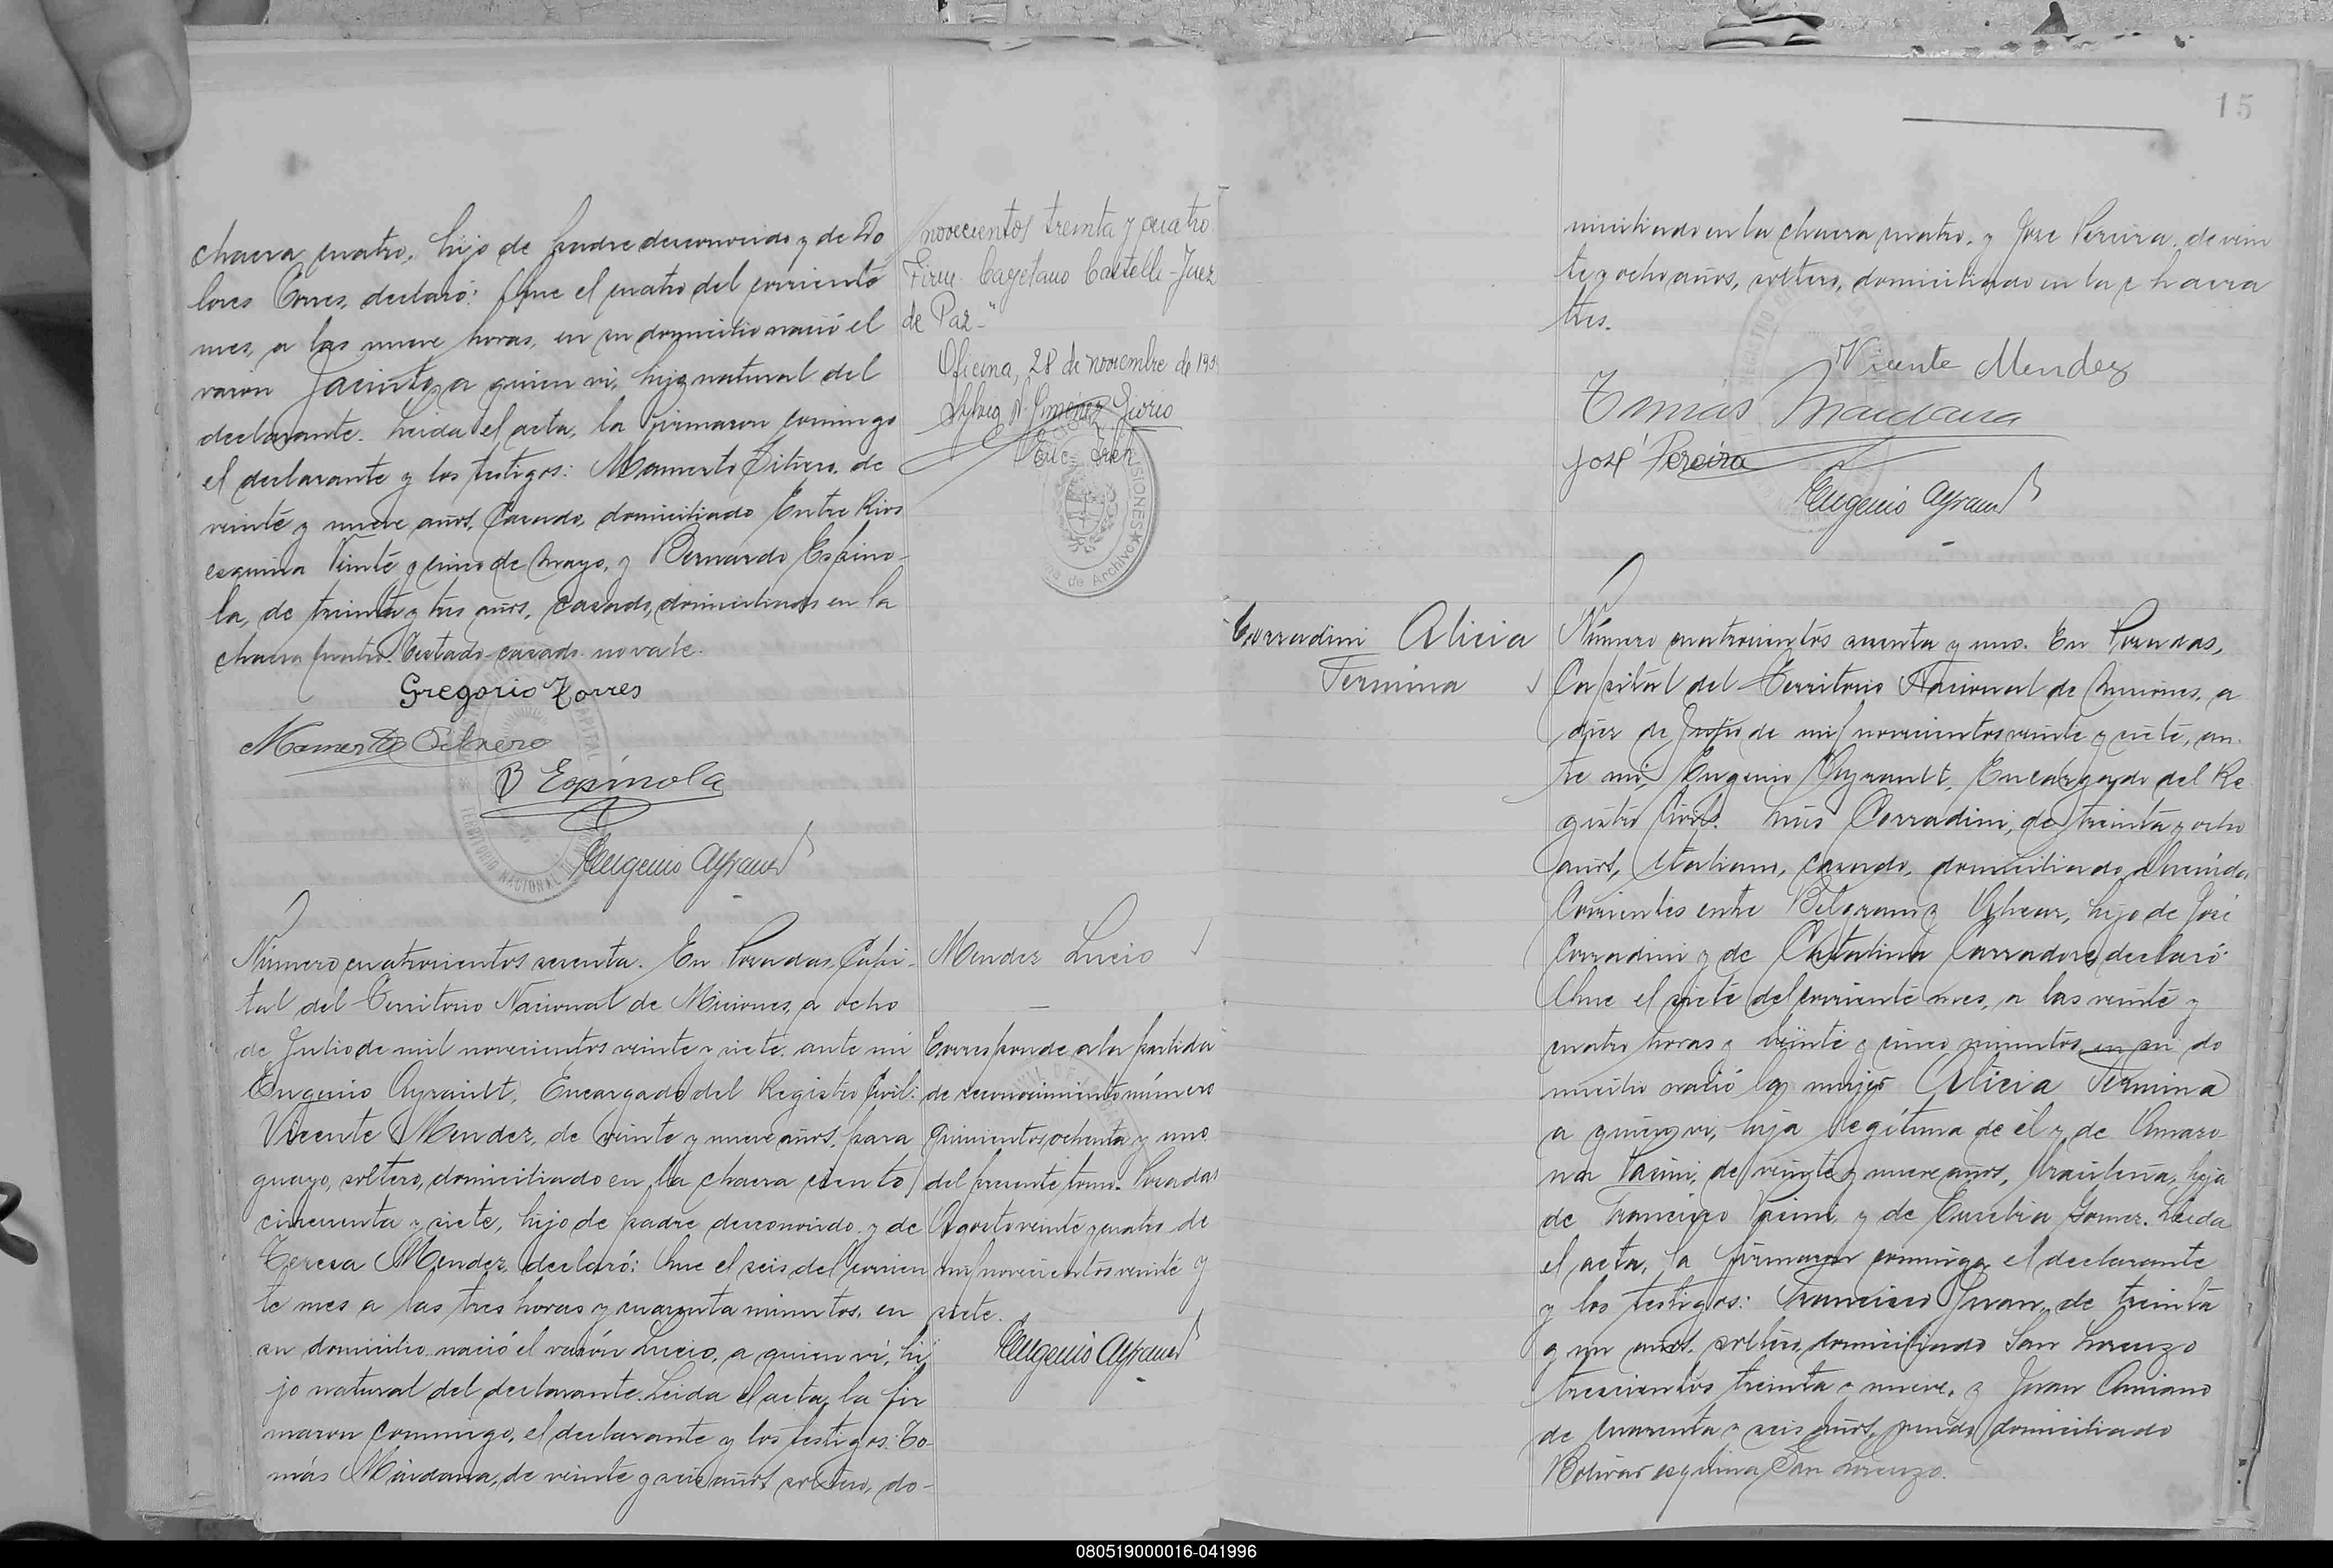 chacra cuatro, hijo de padre desconocido y de Do
lores Torres, declaró: Que el cuatro del corriente
mes, a las nueve horas, en su domicilio nació el
varon Jacinto, a quien vi, hijo natural del
declarante. Leida el acta, la firmaron conmigo
el declarante y los testigos: Mamerto de
veinte y nueve años, casado, domiciliado Entre Rios
esquina Veinte y cinco de Mayo, y Bernardo Espino-
la, de treinta y tres años, casado, domiciliado en la
chacra cuatro. Testado-casado-no vale.
Gregorio Torres
Mamerto
B Espínola
Eugenio Ayrault
Número cuatrocientos sesenta. En Posadas, Capi-
tal del Territorio Nacional de Misiones, a ocho
de Julio de mil novecientos veinte y siete, ante mi
Eugenio Ayrault, Encargado del Registro Civil:
Vicente Mendez, de veinte y nueve años, para
guayo, soltero, domiciliado en la chacra ciento
cincuenta y siete, hijo de padre desconocido y de
Teresa Mendez, declaró: Que el seis del corrien
te mes a las tres horas y cuarenta minutos, en
su domicilio nació el varón Lucio, a quien vi, hi
jo natural del declarante. Leida el acta, la fir
maron conmigo, el declarante y los testigos: To-
más Maidana, de veinte y seis años, soltero, do-
novecientos treinta y cuatro
Firm. Cayetano Castelli-Juez
de Paz-"
Oficina, 28 de noviembre de 193
Gimenez
Enc.
MISIONES
de Archivo
Mendez Lucio
Corresponde a la partida
de reconocimiento número
quinientos ochenta y uno
del presente tomo. Posadas
Agosto veinte y cuatro de
mil novecientos veinte y
siete.
Eugenio Ayrault
15
miciliado en la chacra cuatro, y José Pereira, de vein
te y ocho años, soltero, domiciliado en la chacra
tres.
Vicente Mendez
Tomás Maidana
José Pereira
Eugenio Ayrault
Corradini Alicia
Fermina
Número cuatrocientos sesenta y uno. En Posadas,
Capital del Territorio Nacional de Misiones, a
diez de Julio de mil novecientos veinte y siete, an
te mi, Eugenio Ayrault, Encargado del Re
gistro Civil: Luis Corradini, de treinta y ocho
años, italiano, casado, domiciliado Avenida
Corrientes entre Belgrano y Alvear, hijo de José
Corradini y de Catalina declaró:
Que el siete del corriente mes, a las veinte y
cuatro horas y veinte y cinco minutos en su do
micilio nació la mujer Alicia Fermina
a quien vi, hija legítima de él y de Amaro
na Pasini, de veinte y nueve años, brasileña, hija
de Francisco Pasini, y de Eusebia Gomez. Leida
el acta, la firmaron conmigo el declarante
y los testigos: Francisco Juan, de treinta
y un años, soltero, domiciliado San Lorenzo
trescientos treinta y nueve, y Juan
de cuarenta y seis años, viudo, domiciliado
Bolivar esquina San Lorenzo.
080519000016-041996